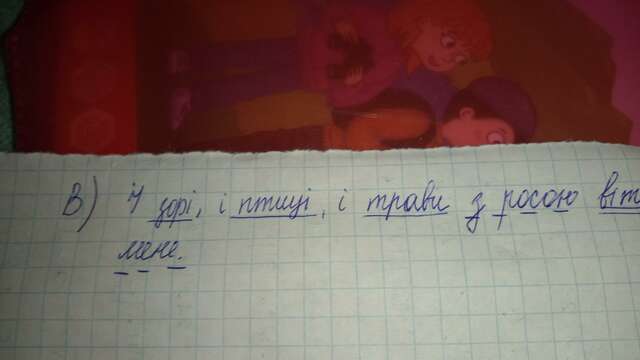 В) І зорі, і птиці, і трави з росою віт
мене.